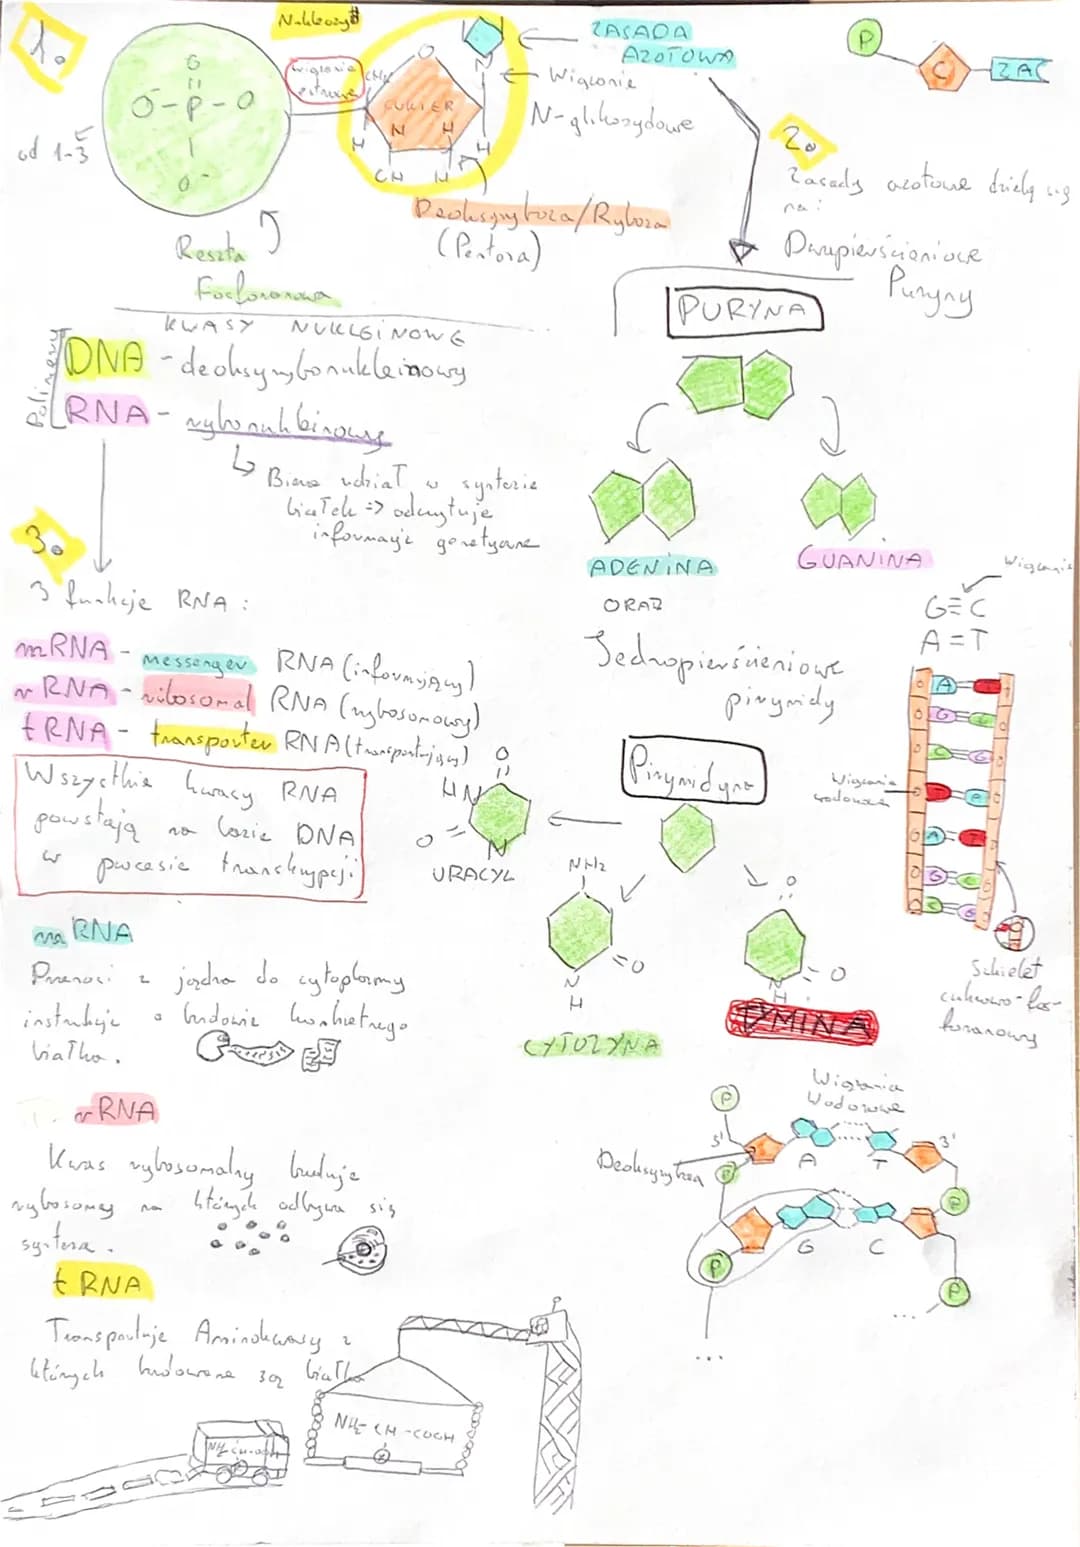 1.
Nukleozyd
ZASADA
AZOTOWA
Wiązanie
N-glikozydowe
wiązanie
estrowe
CH₂
O
N
CUKIER
H H
H H
OH H
O
||
O⁻-P-O
|
O⁻
od 1-3
Reszta
Fosforanowa
Deoksyryboza/Ryboza
(Pentoza)
P
C
ZA
2.
Zasady azotowe dzielą się
na:
Dwupierścieniowe
Puryny
PURYNA
ADENINA
GUANINA
ORAZ
Jednopierścieniowe
pirymidy
Pirymidyna
HN
O
O
N
URACYL
NH₂
O
N
H
CYTOZYNA
O
O
N
H
TYMINA
KWASY NUKLEINOWE
Polimery
DNA - deoksyrybonukleinowy
RNA - rybonukleinowy
↳ Bierze udział w syntezie
białek => odczytuje
informacje genetyczne
3.
3 funkcje RNA:
mRNA - messenger RNA (informujący)
rRNA - ribosomal RNA (rybosomowy)
tRNA - transporter RNA (transportujący)
Wszystkie kwasy RNA
powstają na bazie DNA
w procesie transkrypcji
mRNA
Przenosi z jądra do cytoplazmy
instrukcje o budowie konkretnego
białka.
rRNA
Kwas rybosomalny buduje
rybosomy na których odbywa się
synteza.
tRNA
Transportuje Aminokwasy z
których budowane są białka
NH₂-CH-COOH
NH₂-CH-COOH
Wiązanie
G≡C
A=T
A
G C
C G
A
A T
G C
C G
Wiązanie
wodorowe
Szkielet
cukrowo-fos-
foranowy
Wiązania
Wodorowe
P
5'
3'
Deoksyryboza
P
A T
P
G C
P
P
...
...